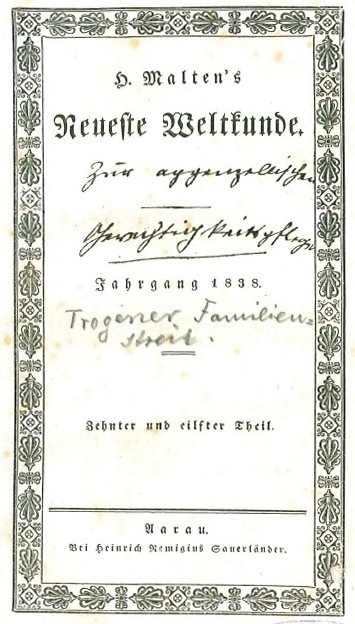 H. Malten's
Neueste Weltkunde.
Zur appenzellischen
Gerechtigkeitspflege
Jahrgang 1838.
Trogener Familien=
streit.
Zehnter und eilfter Theil.
Aarau.
Bei Heinrich Remigius Sauerländer.